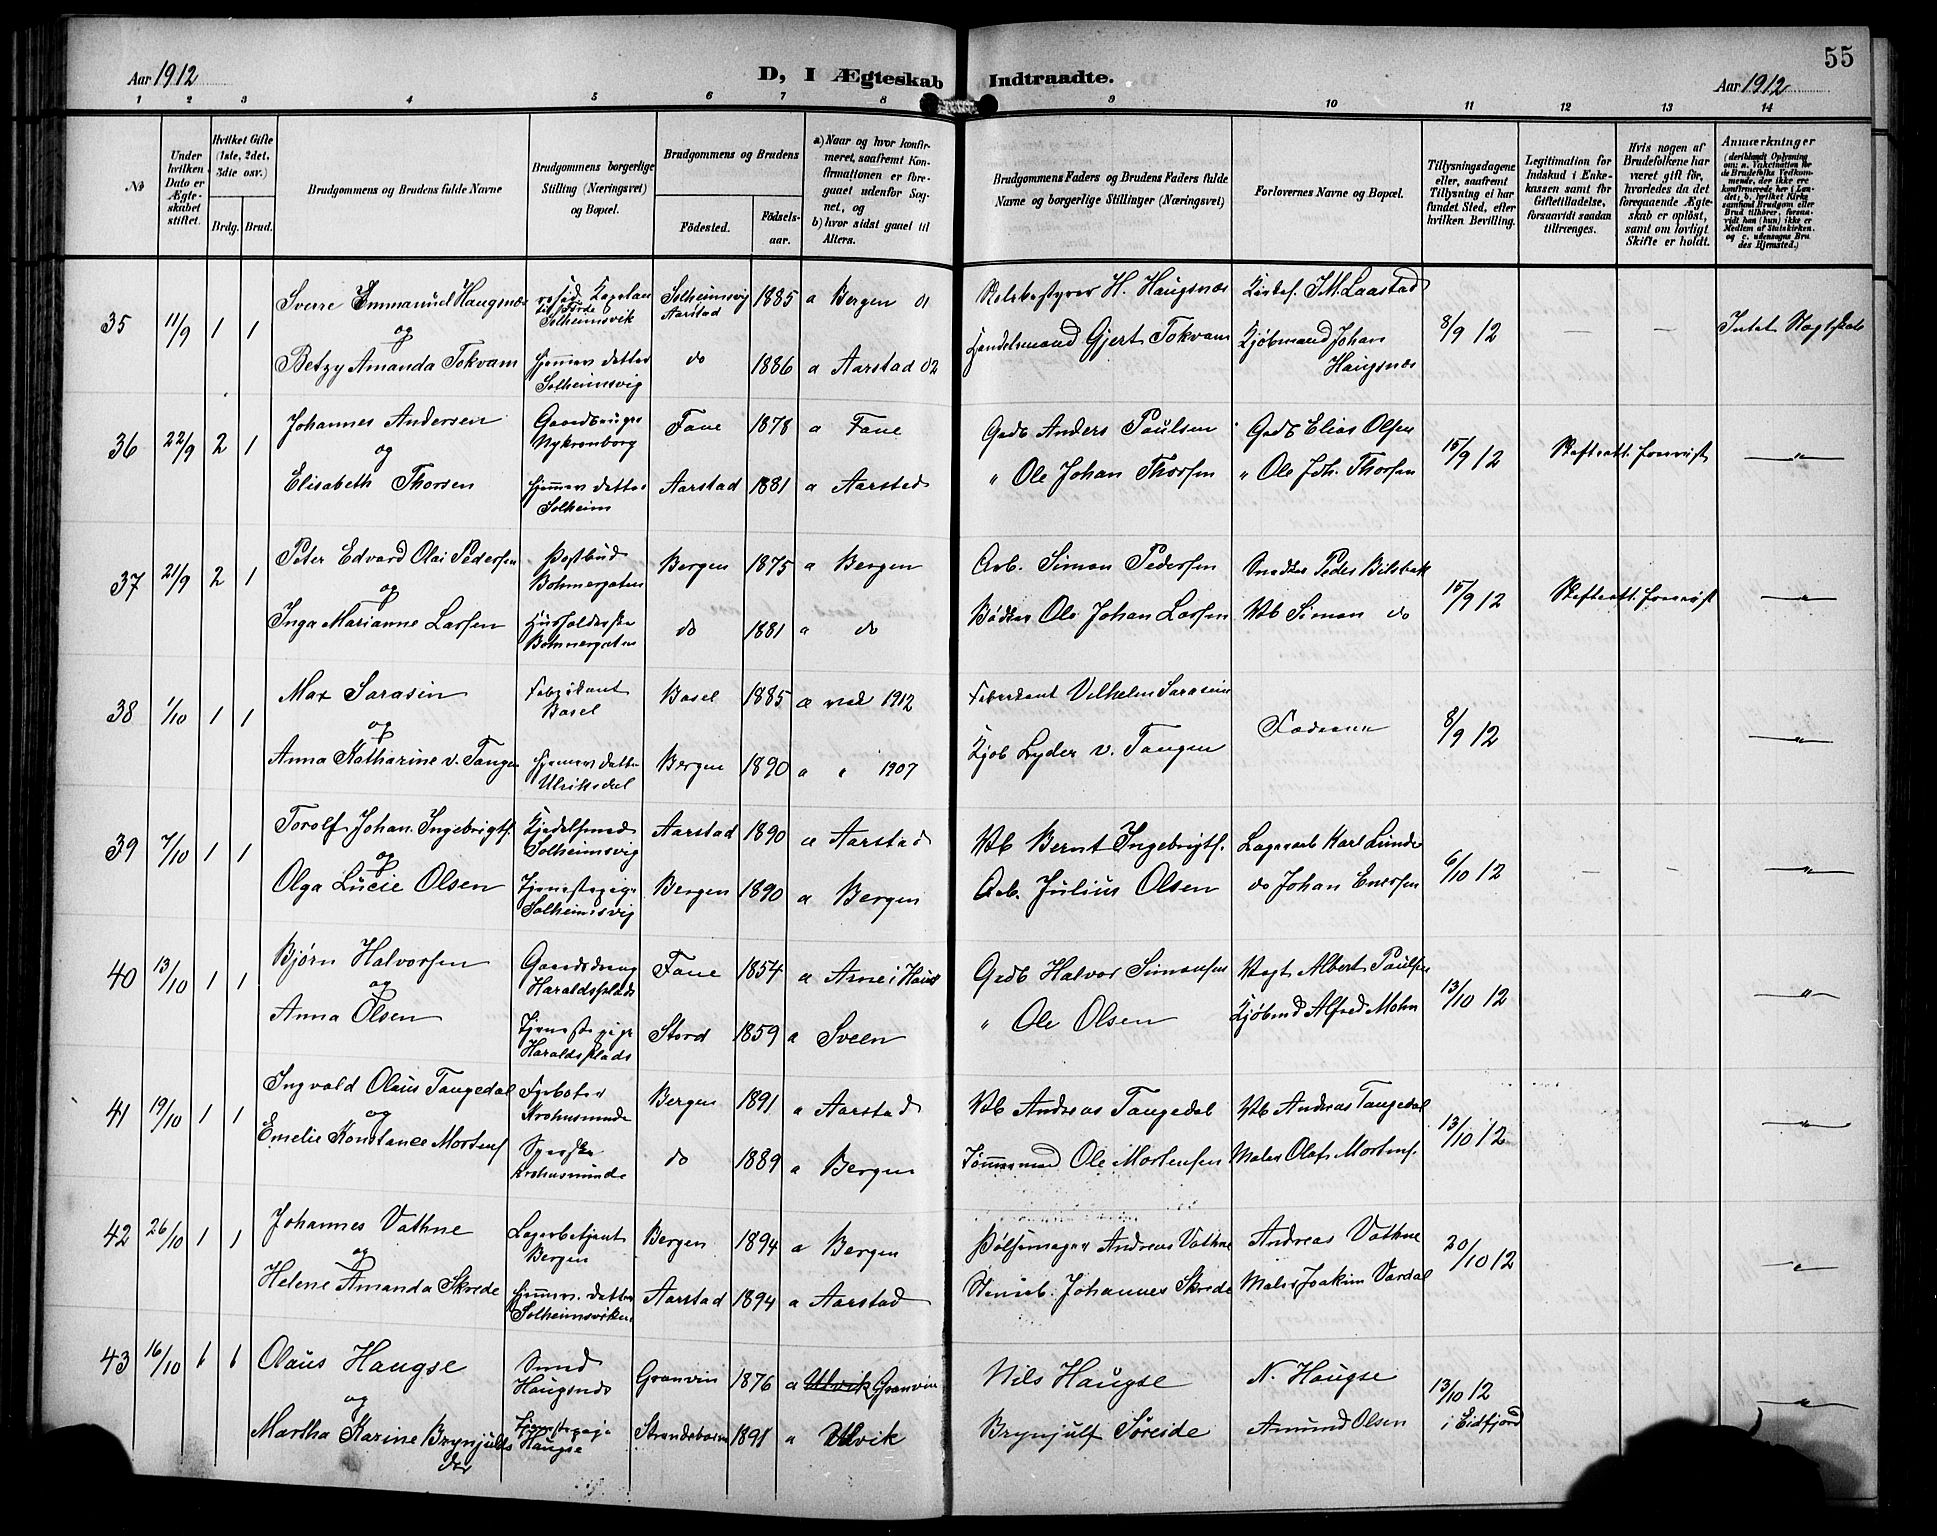 55
Aar 1912
D, I Ægteskab Indtraadte.
Aar 1912
1 2 3 4 5 6 7 8 9 10 11 12 13 14
No
Under hvilken Dato er Ægteskabet stiftet.
Hvilket Gifte (1ste, 2det, 3die osv.)
Brdg. Brud.
Brudgommens og Brudens fulde Navne
Brudgommens borgerlige Stilling (Næringsvei) og Bopæl.
Brudgommens og Brudens
Födested. Födselsaar.
a) Naar og hvor konfirmeret, saafremt Konfirmationen er foregaaet udenfor Sognet, og b) hvor sidst gaaet til Alters.
Brudgommens Faders og Brudens Faders fulde Navne og borgerlige Stillinger (Næringsvei)
Forlovernes Navne og Bopæl.
Tillysningsdagene eller, saafremt Tillysning ei har fundet Sted, efter hvilken Bevilling.
Legitimation for Indskud i Enkekassen samt for Giftetilladelse, forsaavidt saadan tiltrænges.
Hvis nogen af Brudefolkene har været gift för, hvorledes da det foregaaende Ægteskab er oplöst, samt om lovligt Skifte er holdt.
Anmærkninger
35 11/9 1 1 Sverre Emmanuel Haugsnæs Solheimsvik Solheimsvig Aarstad 1885 a Bergen 01 H. Haugsnæs J.M. Laastad 8/9 12 — — Intet Slægtskab
og
Betzy Amanda Tokvam hjemmev. datter Solheimsvig do 1886 a Aarstad 02 Handelsmand Gjert Tokvam Kjöbmand Johan Haugsnæs
36 22/9 2 1 Johannes Andersen Gaardbruger Nykronborg Fane 1878 a Fane Gbdb Anders Paulsen Gbdb Elias Olsen 15/9 12 Skifteatt. forevist —"—
og
Elisabeth Thorsen hjemmev datter Solheim Aarstad 1881 a Aarstad " Ole Johan Thorsen " Ole Joh. Thorsen
37 21/9 2 1 Peter Edvard Olai Pedersen Postbud Bohmergaten Bergen 1875 a Bergen Arb. Simon Pedersen Peder 15/9 12 Skifteatt. forevist —"—
og
Inga Marianne Larsen Husholderske Bohmergaten do 1881 a do Bödker Ole Johan Larsen Simon do
38 1/10 1 1 Max Sarasin Fabrikant Basel Basel 1885 a 1912 Fabrikant Vilhelm Sarasin Fædrene 8/9 12 —"—
og
Anna Katharine v. Tangen hjemmev datter Ulriksdal Bergen 1890 a " 1907 Kjöb Lyder v. Tangen
39 7/10 1 1 Torolf Johan Ingebrigts. Kjedelsmed Solheimsvig Aarstad 1890 a Aarstad Bernt Ingebrigts. Karl Lunde 6/10 12 — — —"—
og
Olga Lucie Olsen Tjenestepige Solheimsvig Bergen 1890 a Bergen Arb. Julius Olsen do Johan Enersen
40 13/10 1 1 Bjørn Halvorsen Gaardsdreng Haraldsplads Fane 1854 a Arne i Haus Gbdb Halvor Simonsen Vogt. Albert Paulsen 13/10 12 —"—
og
Anna Olsen Tjenestepige Haraldsplads Stord 1859 a Sveen " Ole Olsen Kjöbmd Alfred Mohn
41 19/10 1 1 Ingvald Olaus Tangedal Fyrböter Bergen 1891 a Aarstad Andreas Tangedal Andreas Tangedal 13/10 12 —"—
og
Emelie Konstance Mortens. Syerske do 1889 a Bergen Tömmermd Ole Mortensen Maler Olaf Mortens.
42 26/10 1 1 Johannes Vathne Lagerbetjent Bergen Bergen 1894 a Bergen Pölsemager Andreas Vathne Andreas Vathne 20/10 12 —"—
og
Helene Amanda Skrede hjemmev. datter Solheimsviken Aarstad 1894 a Aarstad Johannes Skrede Maler Joakim Vardal
43 16/10 1 1 Olaus Haugse Smed Granvin 1876 a Ulvik Granvin Nils Haugse N. Haugse 13/10 12 i Eidfjord —"—
og
Martha Karine Brynjulfsder Haugse 1891 a Ulvik Brynjulf Søreide Amund Olsen